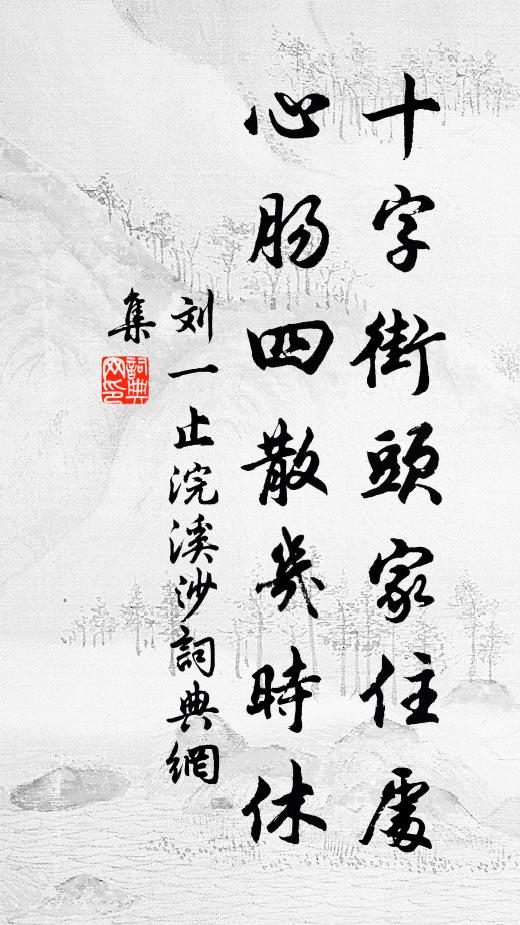 十字街頭家住處
心肠四散幾時休
刘一止浣溪沙詞典網
集
詞典網印